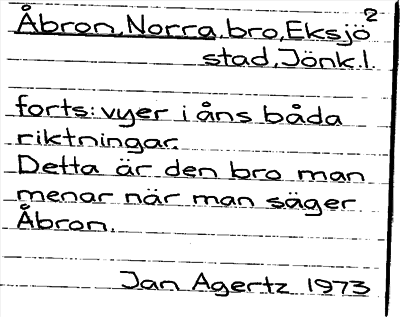 2
Åbron, Norra, bro, Eksjö
stad, Jönk.l.
forts: vyer i åns båda
riktningar.
Detta är den bro man
menar när man säger
Åbron.
Jan Agertz 1973